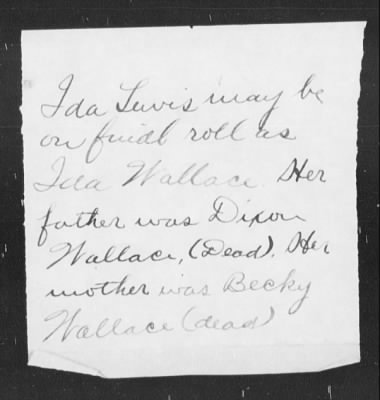 Ida Lewis may be
on finidl roll as
Ida Wallace. Her
father was Dixon
Wallace, (Dead). Her
mother was Becky
Wallace (dead)